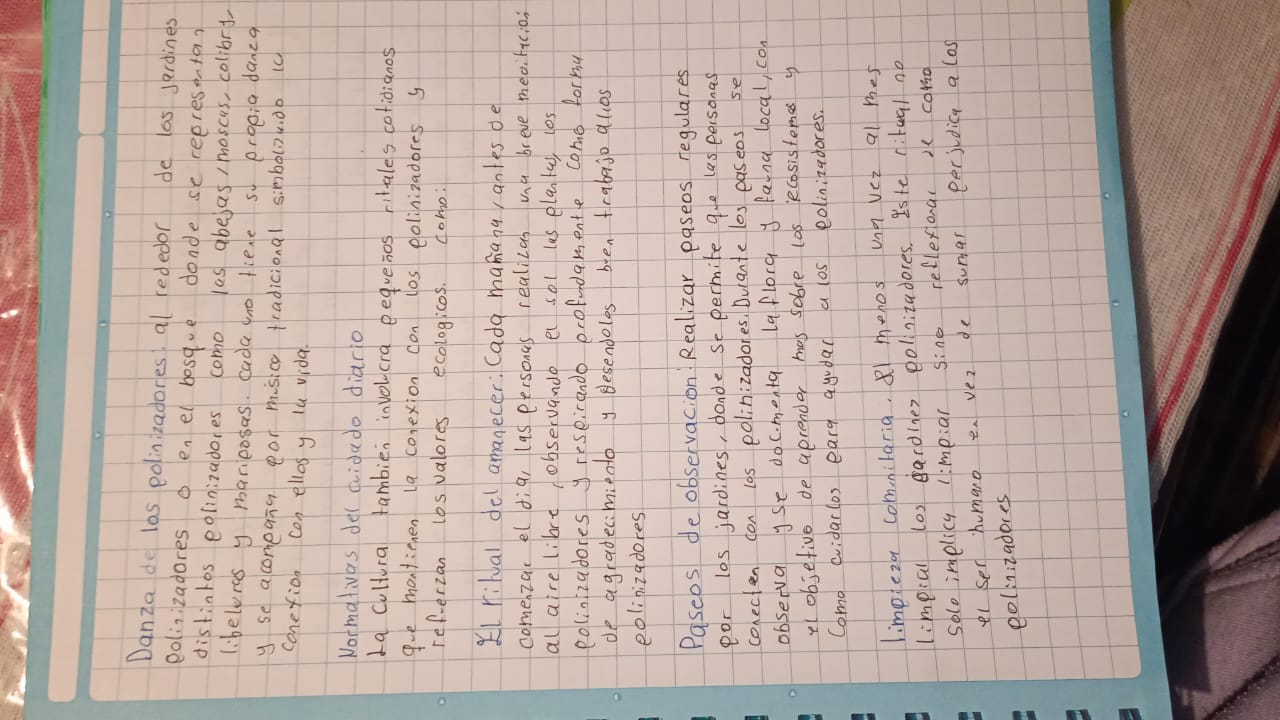 Danza de los polinizadores: al rededor de los jardines
polinizadores o en el bosque donde se representan
distintos polinizadores como las abejas, moscas, colibry,
libelulas y mariposas. Cada uno tiene su propia danza
y se acompaña por música tradicional simbolizando la
conexion con ellos y la vida.
Normativas del cuidado diario
La Cultura tambien involucra pequeños rituales cotidianos
que mantienen la conexion con los polinizadores y
refuerzan los valores ecologicos. Como:
El ritual del amanecer: Cada mañana, antes de
comenzar el dia, las personas realizan una breve meditación
al aire libre, observando el sol las plantas, los
polinizadores y respirando profundamente como forma
de agradecimiento y desendoles buen trabajo a los
polinizadores
Paseos de observación: Realizar paseos regulares
por los jardines, donde se permite que las personas
conecten con los polinizadores. Durante los paseos se
observa y se documenta la flora y fauna local, con
el objetivo de aprender mas sobre los ecosistemas y
como cuidarlos para ayudar a los polinizadores.
limpieza comunitaria. Al menos una vez al mes
limpial los jardines polinizadores. Este ritual no
solo implica limpiar sino reflexionar de como
el ser humano en vez de sumar perjudica a los
polinizadores